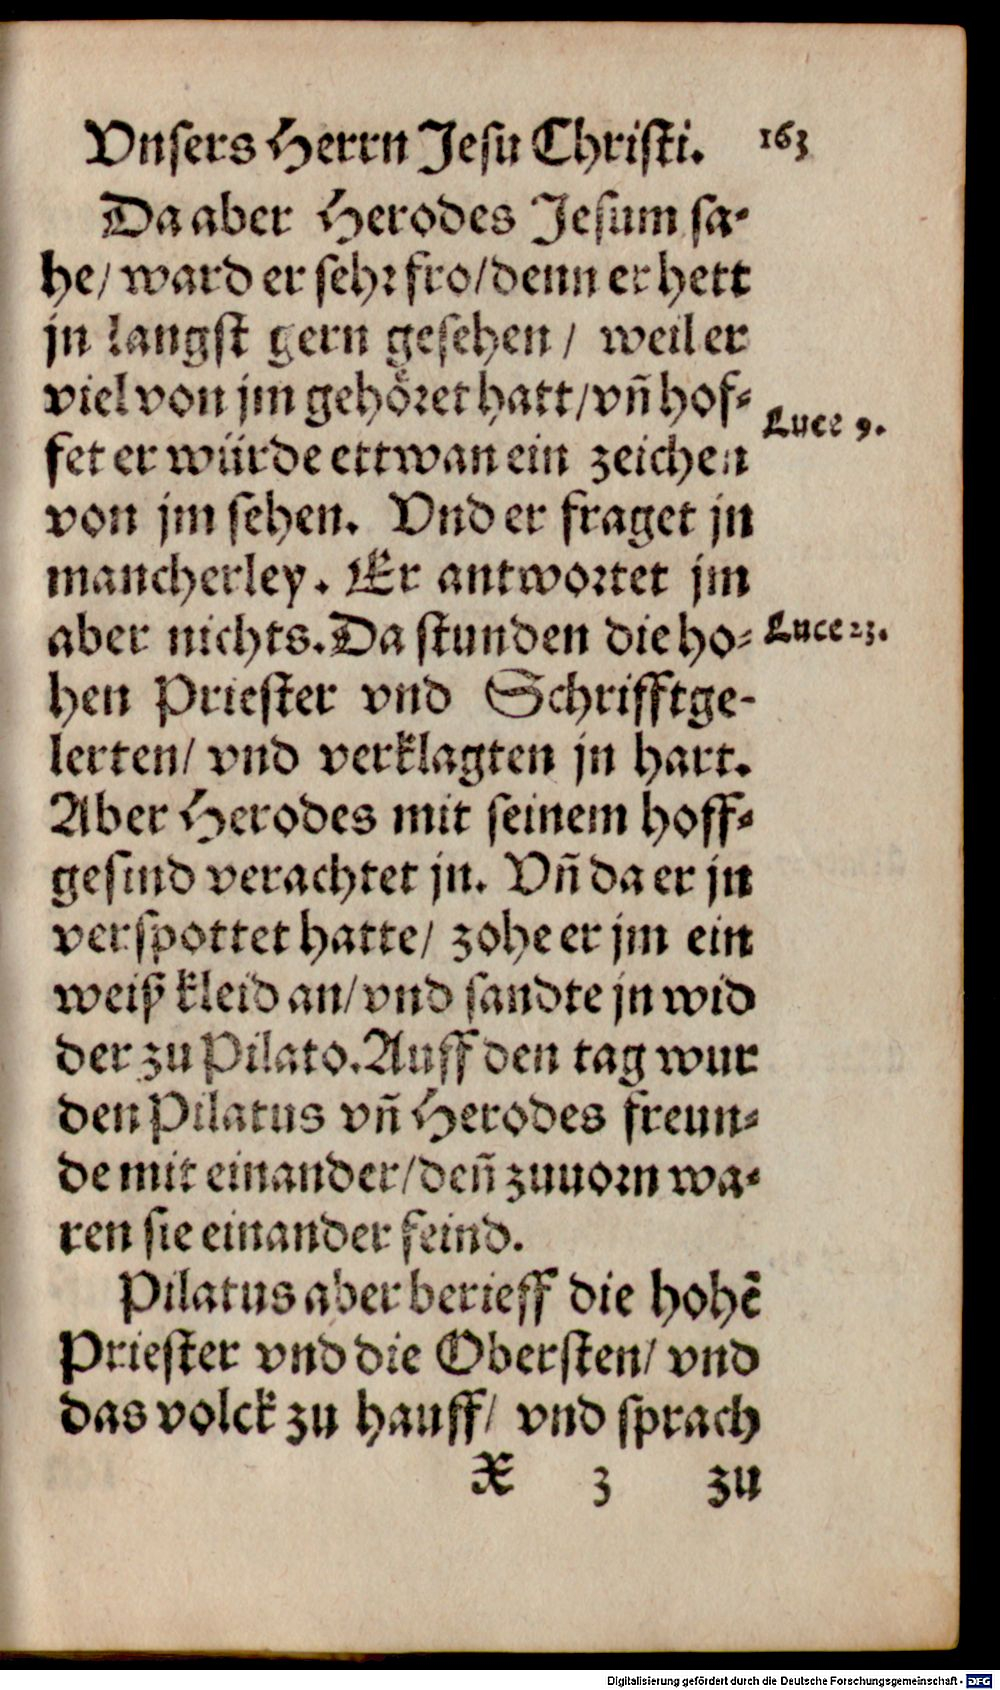 Vnsers Herrn Jesu Christi. 163
Da aber Herodes Jesum sa-
he/ ward er sehr fro/denn er hett
jn langst gern gesehen/ weil er
viel von jm gehöret hatt/vñ hof-
Luce 9.
fet er würde ettwan ein zeichen
von jm sehen. Vnd er fraget jn
mancherley. Er antwortet jm
aber nichts. Da stunden die ho-
Luce 23.
hen Priester vnd Schrifftge-
lerten/ vnd verklagten jn hart.
Aber Herodes mit seinem hoff-
gesind verachtet jn. Vñ da er jn
verspottet hatte/ zohe er jm ein
weiß kleid an/vnd sandte jn wid
der zu Pilato. Auff den tag wur
den Pilatus vñ Herodes freun-
de mit einander/deñ zuuorn wa-
ren sie einander feind.
Pilatus aber berieff die hohẽ
Priester vnd die Obersten/ vnd
das volck zu hauff/ vnd sprach
X 3 zu
Digitalisierung gefördert durch die Deutsche Forschungsgemeinschaft - DFG